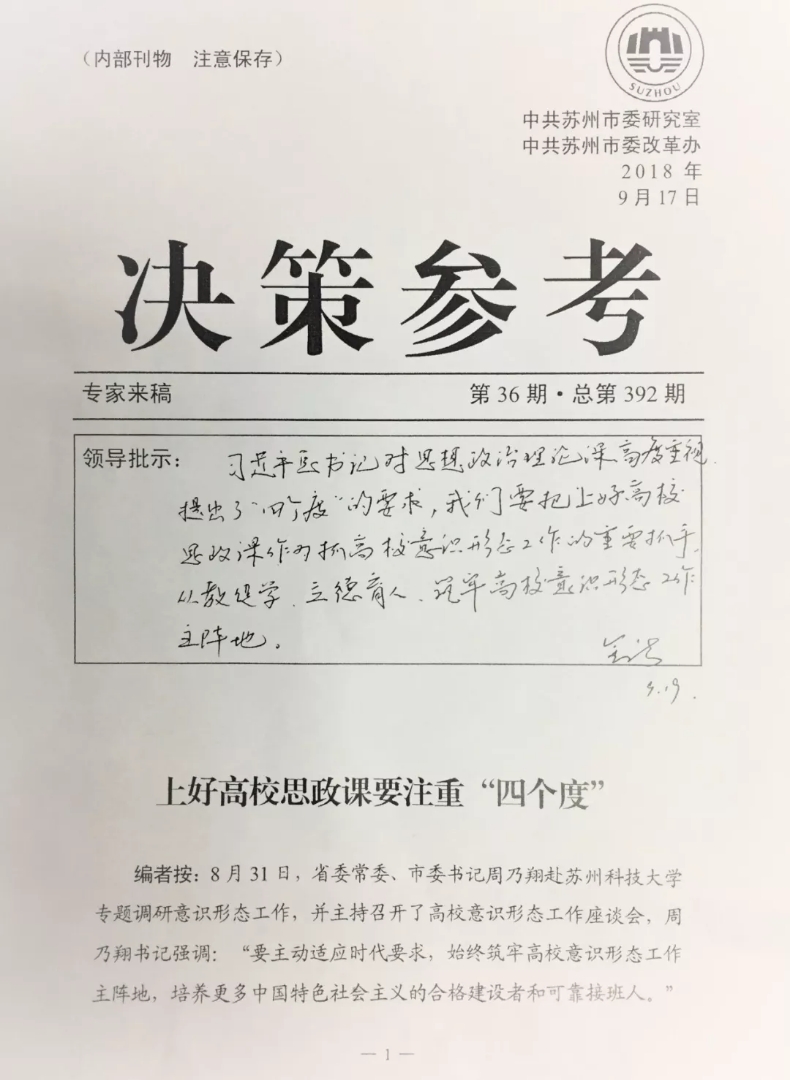 （内部刊物 注意保存）
SUZHOU
中共苏州市委研究室
中共苏州市委改革办
2018 年
9月17日
决策参考
专家来稿
第36期·总第392期
领导批示：
习近平总书记对思想政治理论课高度重视，
提出了“四个度”的要求，我们要把上好高校
思政课作为抓高校意识形态工作的重要抓手，
从教促学、立德育人、筑牢高校意识形态工作
主阵地。
上好高校思政课要注重“四个度”
编者按：8月31日，省委常委、市委书记周乃翔赴苏州科技大学
专题调研意识形态工作，并主持召开了高校意识形态工作座谈会，周
乃翔书记强调：“要主动适应时代要求，始终筑牢高校意识形态工作
主阵地，培养更多中国特色社会主义的合格建设者和可靠接班人。”
— 1 —